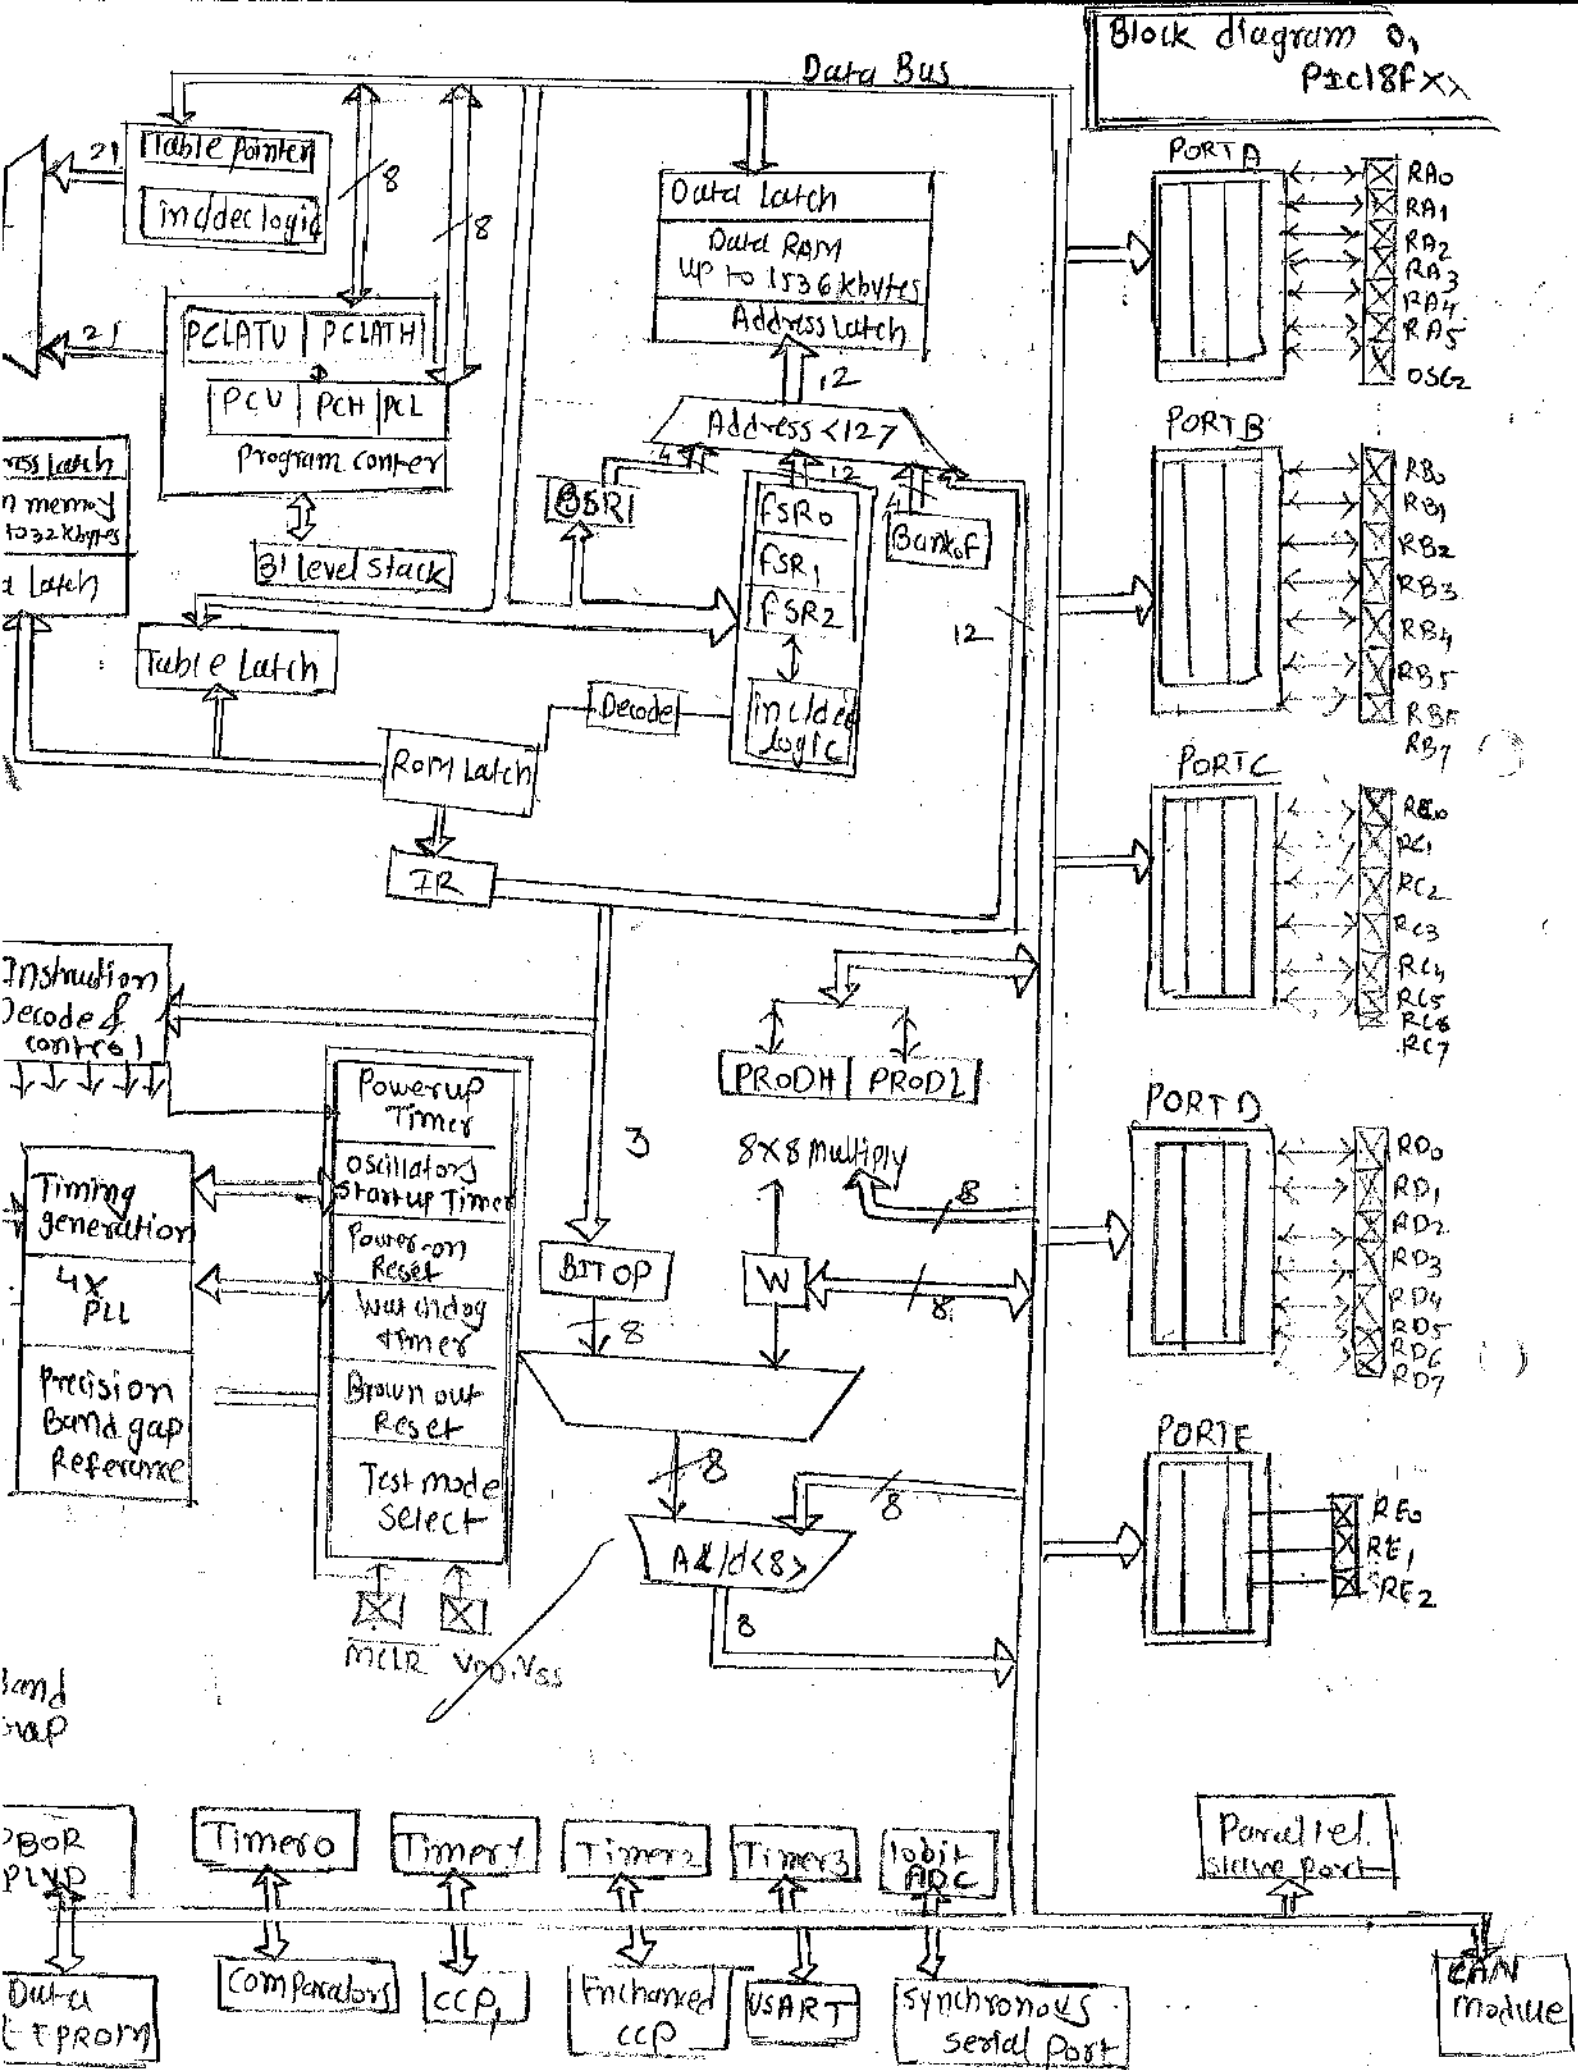 Block diagram o,
PIC18FXX
Data Bus
Table pointer
inc/dec logic
21
8
8
21
PCLATU PCLATH
PCU PCH PCL
Program conter
31 level stack
ress latch
n memory
to 32 kbytes
latch
Table Latch
ROM Latch
IR
Decode
Data latch
Data RAM
up to 1536 kbytes
Address Latch
12
Address <12>
4
12
4
BSR
FSR0
FSR1
FSR2
inc/dec
logic
Bank0F
12
Instruction
Decode &
control
Timing
generation
4X
PLL
Precision
Band gap
Reference
Powerup
Timer
Oscillators
Startup Timer
Power-on
Reset
Watchdog
timer
Brown out
Reset
Test mode
Select
MCLR VDD,VSS
3
BITOP
8
PRODH PRODL
8X8 Multiply
8
W
8
8
8
8
PORTA
RA0
RA1
RA2
RA3
RA4
RA5
OSC2
PORTB
RB0
RB1
RB2
RB3
RB4
RB5
RB6
RB7
PORTC
RC0
RC1
RC2
RC3
RC4
RC5
RC6
RC7
PORTD
RD0
RD1
RD2
RD3
RD4
RD5
RD6
RD7
PORTE
RE0
RE1
RE2
Band
gap
PBOR
PLVD
Timer0
Timer1
Timer2
Timer3
10bit
ADC
Parallel
slave port
Data
EEPROM
Comparators
CCP1
Enchanced
CCP
USART
Synchronous
Serial Port
CAN
module